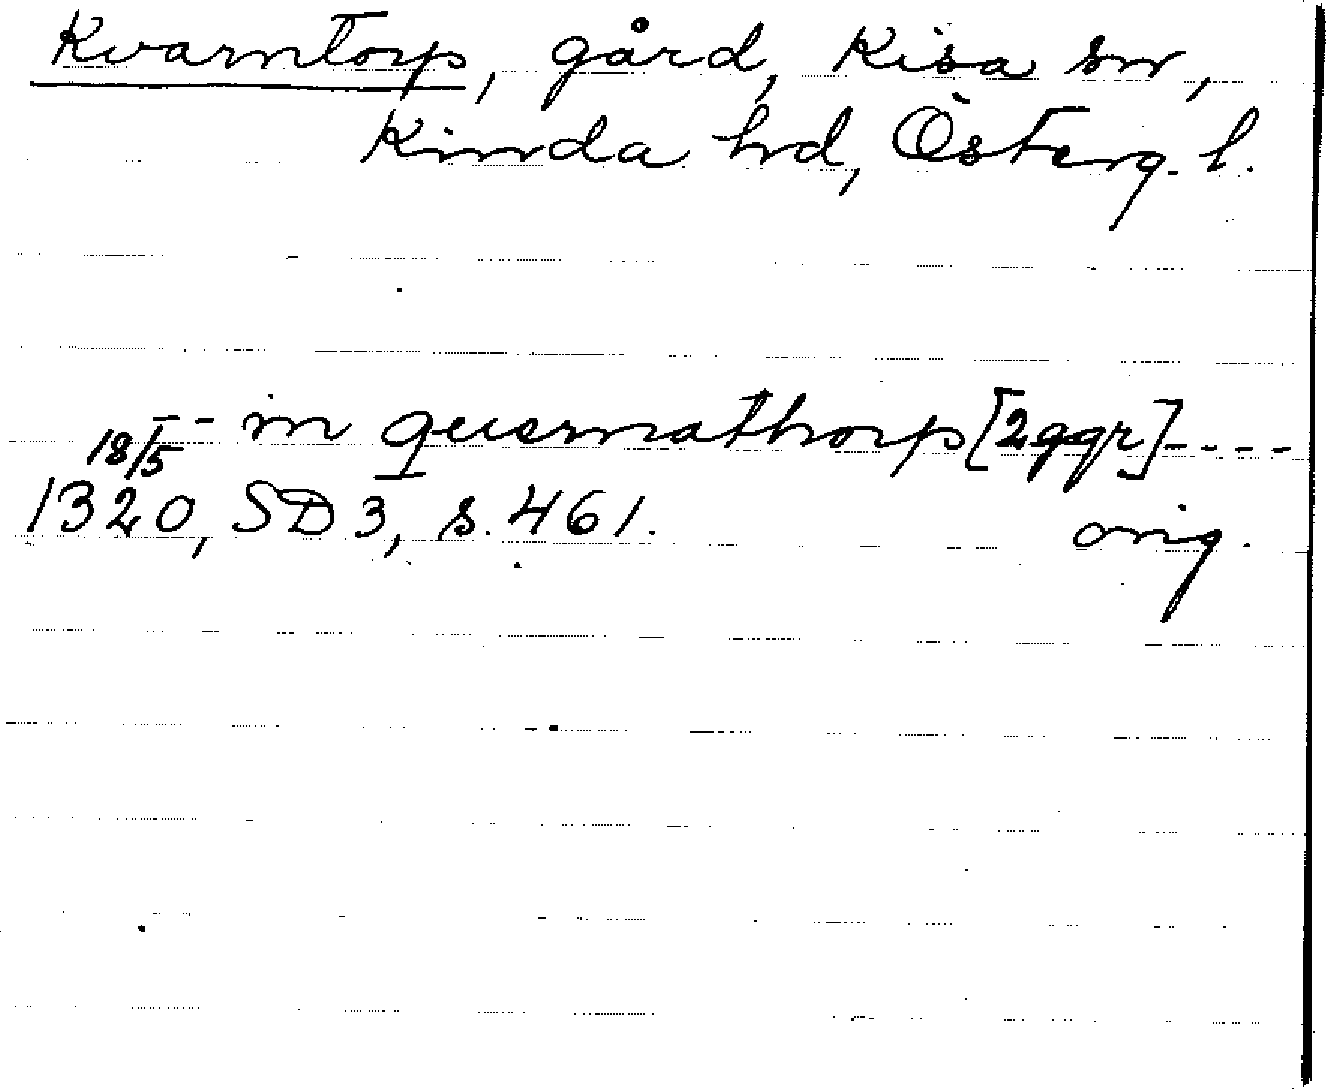 Kvarntorp, gård, Kisa sn,
Kinda hd, Österg. l.
- - in quernathorp [2 ggr] - - - -
18/5 1320, SD 3, s. 461. orig.